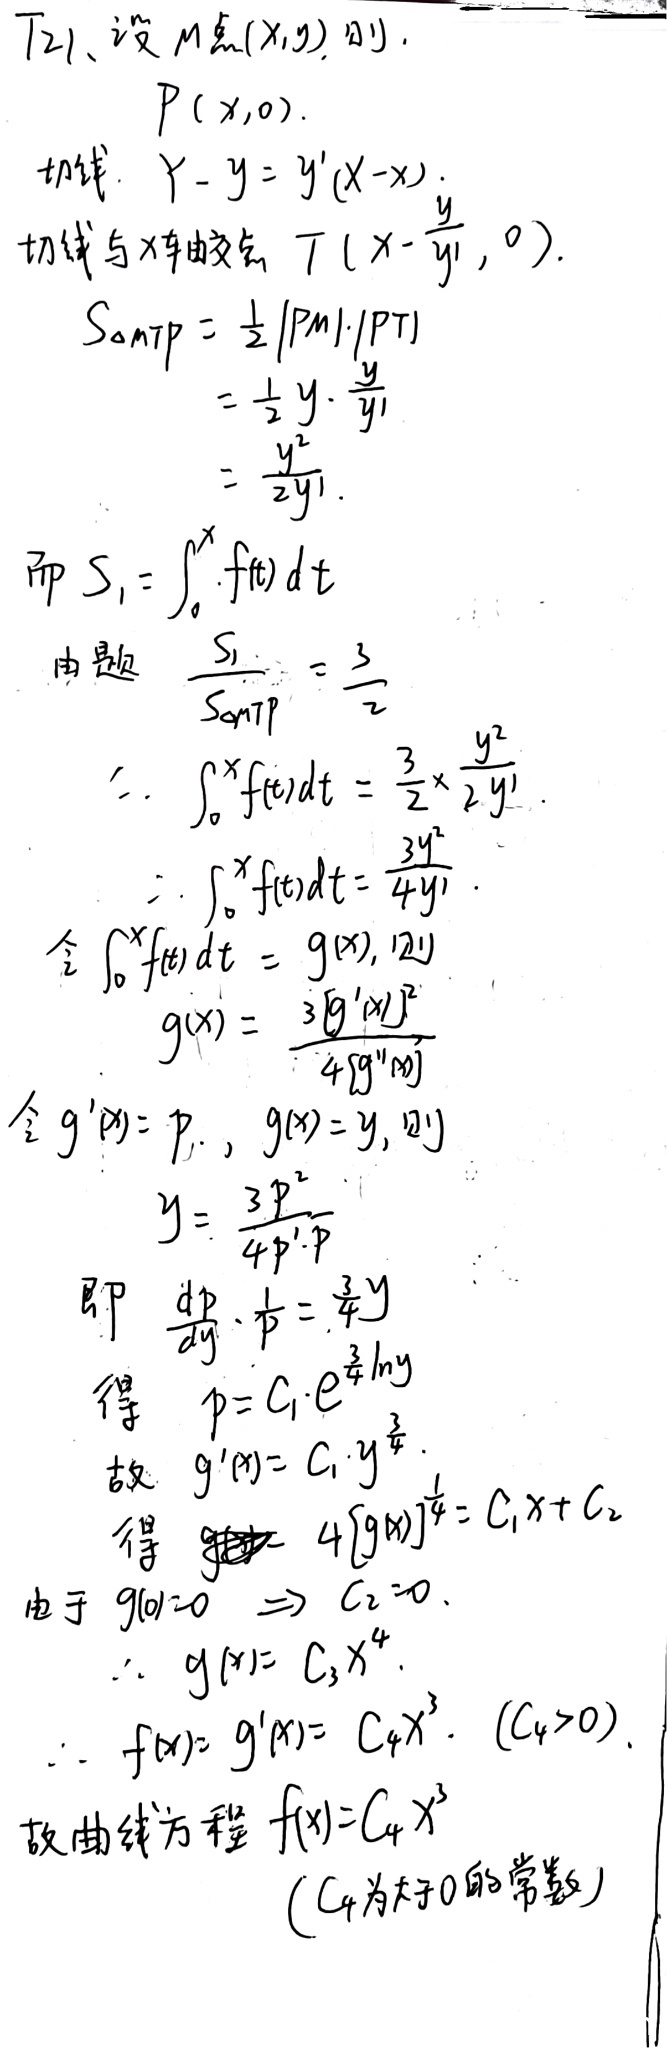 T21、设M点(x,y),则.
P(x,0).
切线. Y-y=y'(X-x).
切线与x轴交点 T(x-\frac{y}{y'},0).
S△MTP=\frac{1}{2}|PM|·|PT|
=\frac{1}{2}y·\frac{y}{y'}
=\frac{y^2}{2y'}.
而 S_1=\int_0^x f(t)dt
由题 \frac{S_1}{S△MTP}=\frac{3}{2}
∴ \int_0^x f(t)dt=\frac{3}{2}×\frac{y^2}{2y'}.
∴ \int_0^x f(t)dt=\frac{3y^2}{4y'}.
令 \int_0^x f(t)dt=g(x),则
g(x)=\frac{3[g'(x)]^2}{4[g''(x)]}
令 g'(x)=p, g(x)=y,则
y=\frac{3p^2}{4p'·p}
即 \frac{dp}{dy}·\frac{1}{p}=\frac{3}{4}y
得 p=C_1·e^{\frac{3}{4}lny}
故 g'(x)=C_1·y^{\frac{3}{4}}.
得 4[g(x)]^{\frac{1}{4}}=C_1x+C_2
由于 g(0)=0 ⇒ C_2=0.
∴ g(x)=C_3x^4.
∴ f(x)=g'(x)=C_4x^3. (C_4>0).
故曲线方程 f(x)=C_4x^3
(C_4为大于0的常数)